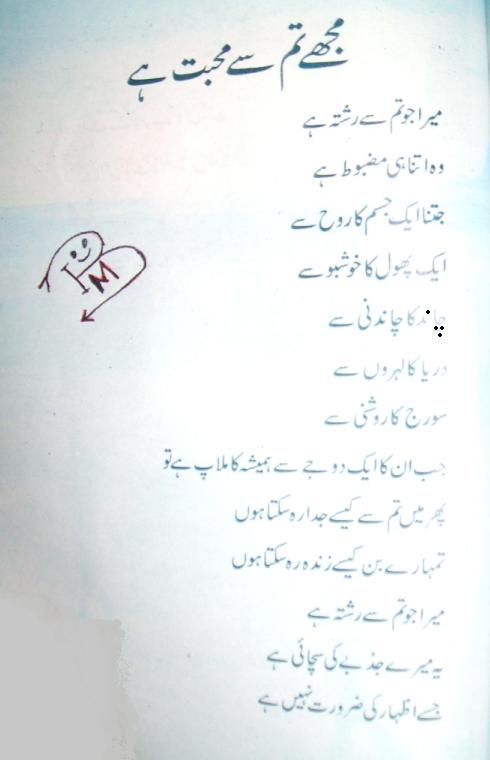 مجھے تم سے محبت ہے
میرا جو تم سے رشتہ ہے
وہ اتنا ہی مضبوط ہے
جتنا ایک جسم کا روح سے
ایک پھول کا خوشبو سے
چاند کا چاندنی سے
دریا کا لہروں سے
سورج کا روشنی سے
جب ان کا ایک دوجے سے ہمیشہ کا ملاپ ہے تو
پھر میں تم سے کیسے جدا رہ سکتا ہوں
تمہارے بن کیسے زندہ رہ سکتا ہوں
میرا جو تم سے رشتہ ہے
یہ میرے جذبے کی سچائی ہے
جسے اظہار کی ضرورت نہیں ہے
I M